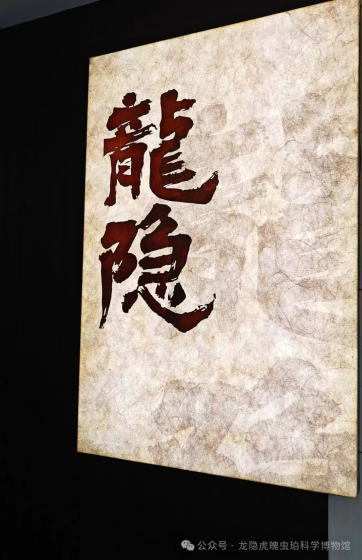 龍
隐
公众号·龙隐虎魄虫珀科学博物馆